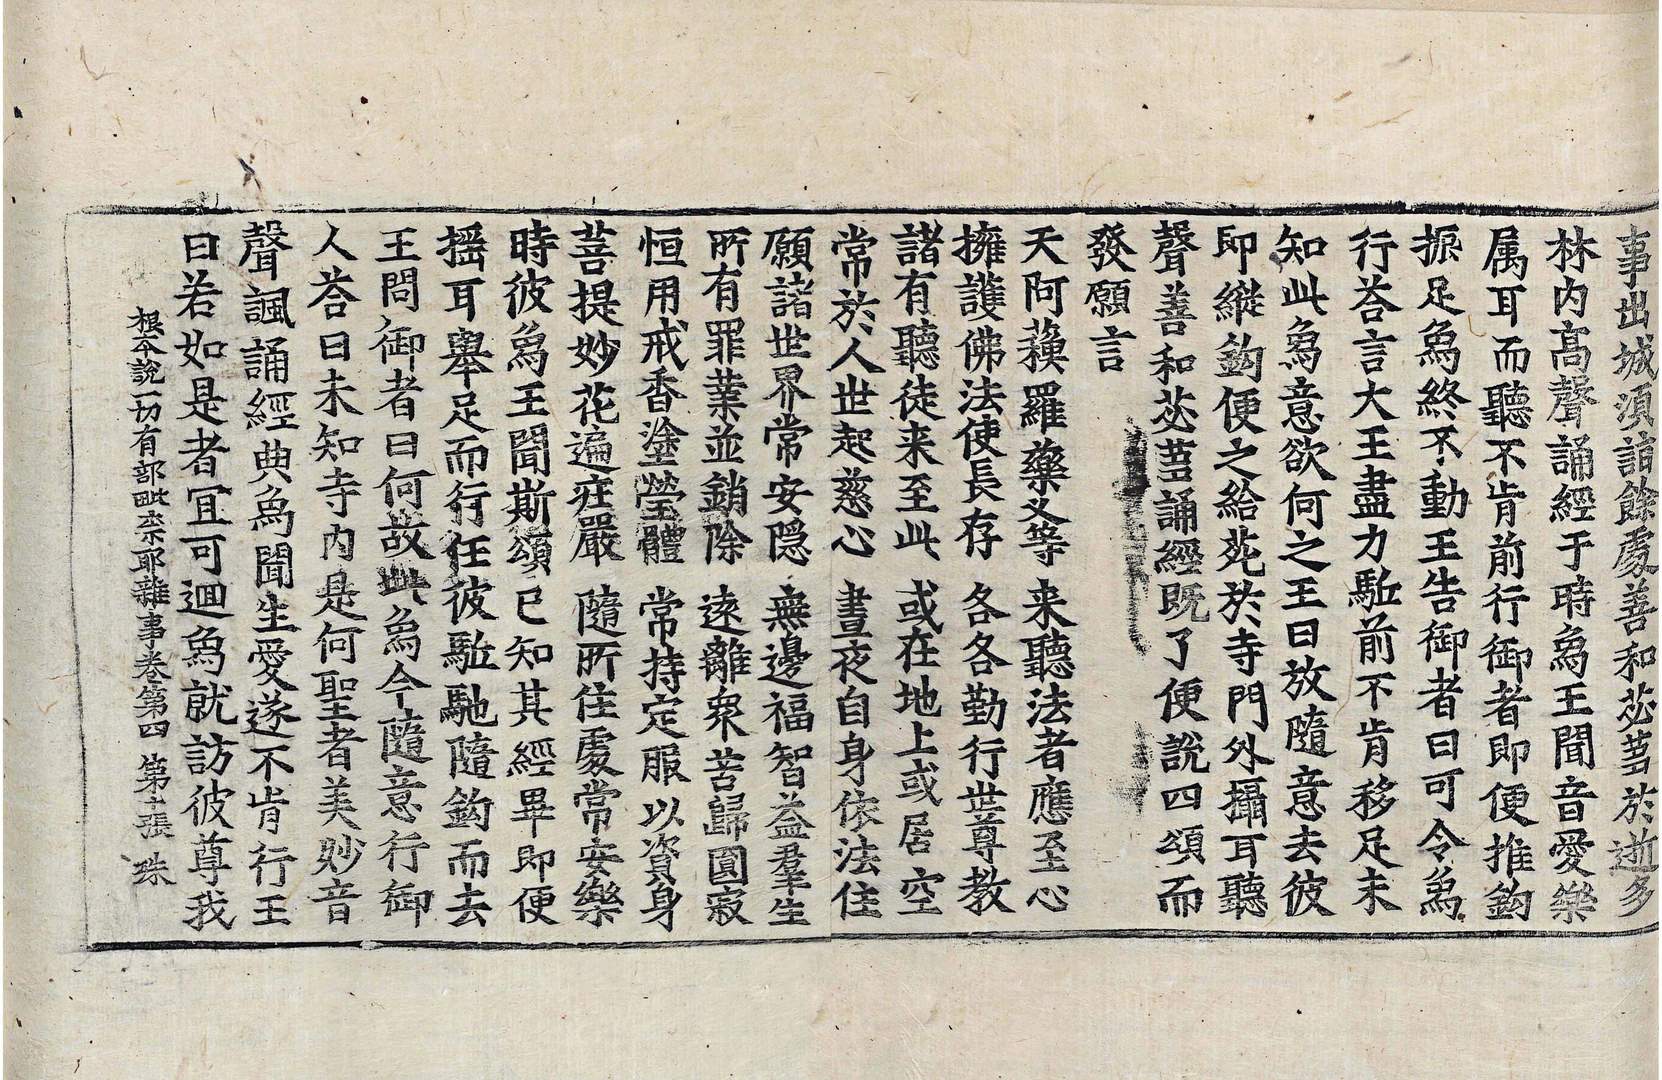 事出城湏詣餘處善和苾芻於逝多
林内髙聲誦經于時爲王聞音愛樂
属耳而聽不肯前行御者即便推鈎
振足爲終不動王告御者曰可令爲
行荅言大王盡力駈前不肯移足未
知此爲意欲何之王曰放隨意去彼
即縱鈎便之給苑於寺門外攝耳聽
聲善和苾芻誦經既了便說四頌而
發願言
天阿蘓羅藥叉等 来聽法者應至心
擁護佛法使長存 各各勤行世尊教
諸有聽徒来至此 或在地上或居空
常於人世起慈心 晝夜自身依法住
願諸世界常安隠 無邊福智益羣生
所有罪業並銷除 遠離衆苦歸圓寂
恒用戒香塗瑩體 常持定服以資身
菩提妙花遍莊嚴 隨所住處常安樂
時彼爲王聞斯頌已知其經畢即便
揺耳舉足而行任彼駈馳隨鈎而去
王問御者曰何故此爲今隨意行御
人荅曰未知寺内是何聖者美妙音
聲諷誦經典爲聞生愛遂不肯行王
曰若如是者宜可迴爲就訪彼尊我
根本說一切有部毗奈耶雜事卷第四 第十張 珠